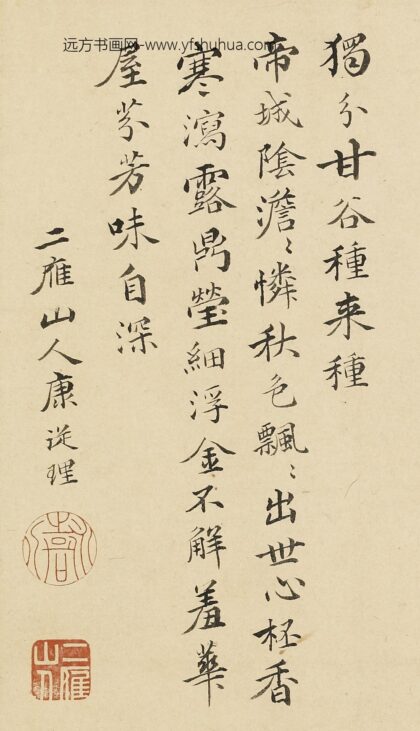 远方书画网--www.yfshuhua.com
獨分甘谷種来種
帝城陰澹〻憐秋色飄〻出世心柸香
寒瀉露鼎瑩細浮金不解羞華
屋芬芳味自深
二雁山人康從理
二雁山人